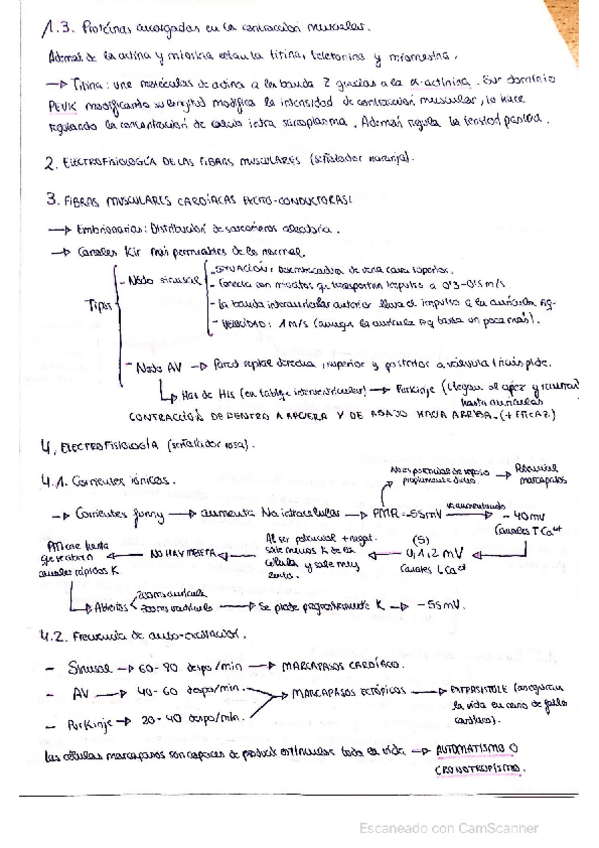 1.3. Proteínas encargadas en la contracción muscular.
Además de la actina y miosina están la titina, teletonina y miomesina.
→ Titina: une moléculas de actina a la banda Z gracias a la α-actinina. Sur dominio
PEVK modificando su longitud modifica la intensidad de contracción muscular, lo hace
regulando la concentración de calcio intra sarcoplasma. Además regula la tensión pasiva.
2. ELECTROFISIOLOGÍA DE LAS FIBRAS MUSCULARES (señalador naranja).
3. FIBRAS MUSCULARES CARDÍACAS EXCITO-CONDUCTORAS!
→ Embrionarias: Distribución de sarcómeros aleatoria.
→ Canales Kir más permeables de lo normal.
Tipos
- Nodo sinusal
- SITUACIÓN: Desembocadura de vena cava superior.
- Conecta con miocitos que transportan impulso a 0'3-0'5 m/s
- La banda interauricular anterior lleva el impulso a la aurícula izq.
- VELOCIDAD: 1 m/s (aunque la aurícula izq tarda un poco más).
- Nodo AV → Pared septal derecha, superior y posterior a válvula tricúspide.
Has de His (en tabique interventricular) → Purkinje (llegan al ápex y
hasta aurículas
CONTRACCIÓN DE DENTRO A AFUERA Y DE ABAJO HACIA ARRIBA. (+ EFICAZ)
4. ELECTROFISIOLOGÍA (señalador rosa).
4.1. Corrientes iónicas.
No es potencial de reposo propiamente dicho → Potencial marcapasos
→ Corrientes funny → aumenta Na intracelular → PMR = -55mV → va aumentando → -40mV
Canales T Ca²⁺
(5)
0,1,2 mV
Canales L Ca²⁺
Al ser potencial + negat. sale menos K de la célula y sale muy lento.
NO HAY MESETA
canales rápidos K.
Abiertos
200ms aurícula
300ms ventrículo
→ Se pierde progresivamente K → -55mV.
4.2. Frecuencia de auto-excitación.
- Sinusal → 60-80 despo/min → MARCAPASOS CARDÍACO.
- AV → 40-60 despo/min.
→ MARCAPASOS ECTÓPICOS → EXTRASÍSTOLE (aseguran
la vida en caso de fallo
cardíaco).
- Purkinje → 20-40 despo/min.
Las células marcapasos son capaces de producir estímulos toda la vida → AUTOMATISMO O
CRONOTROPISMO.
Escaneado con CamScanner